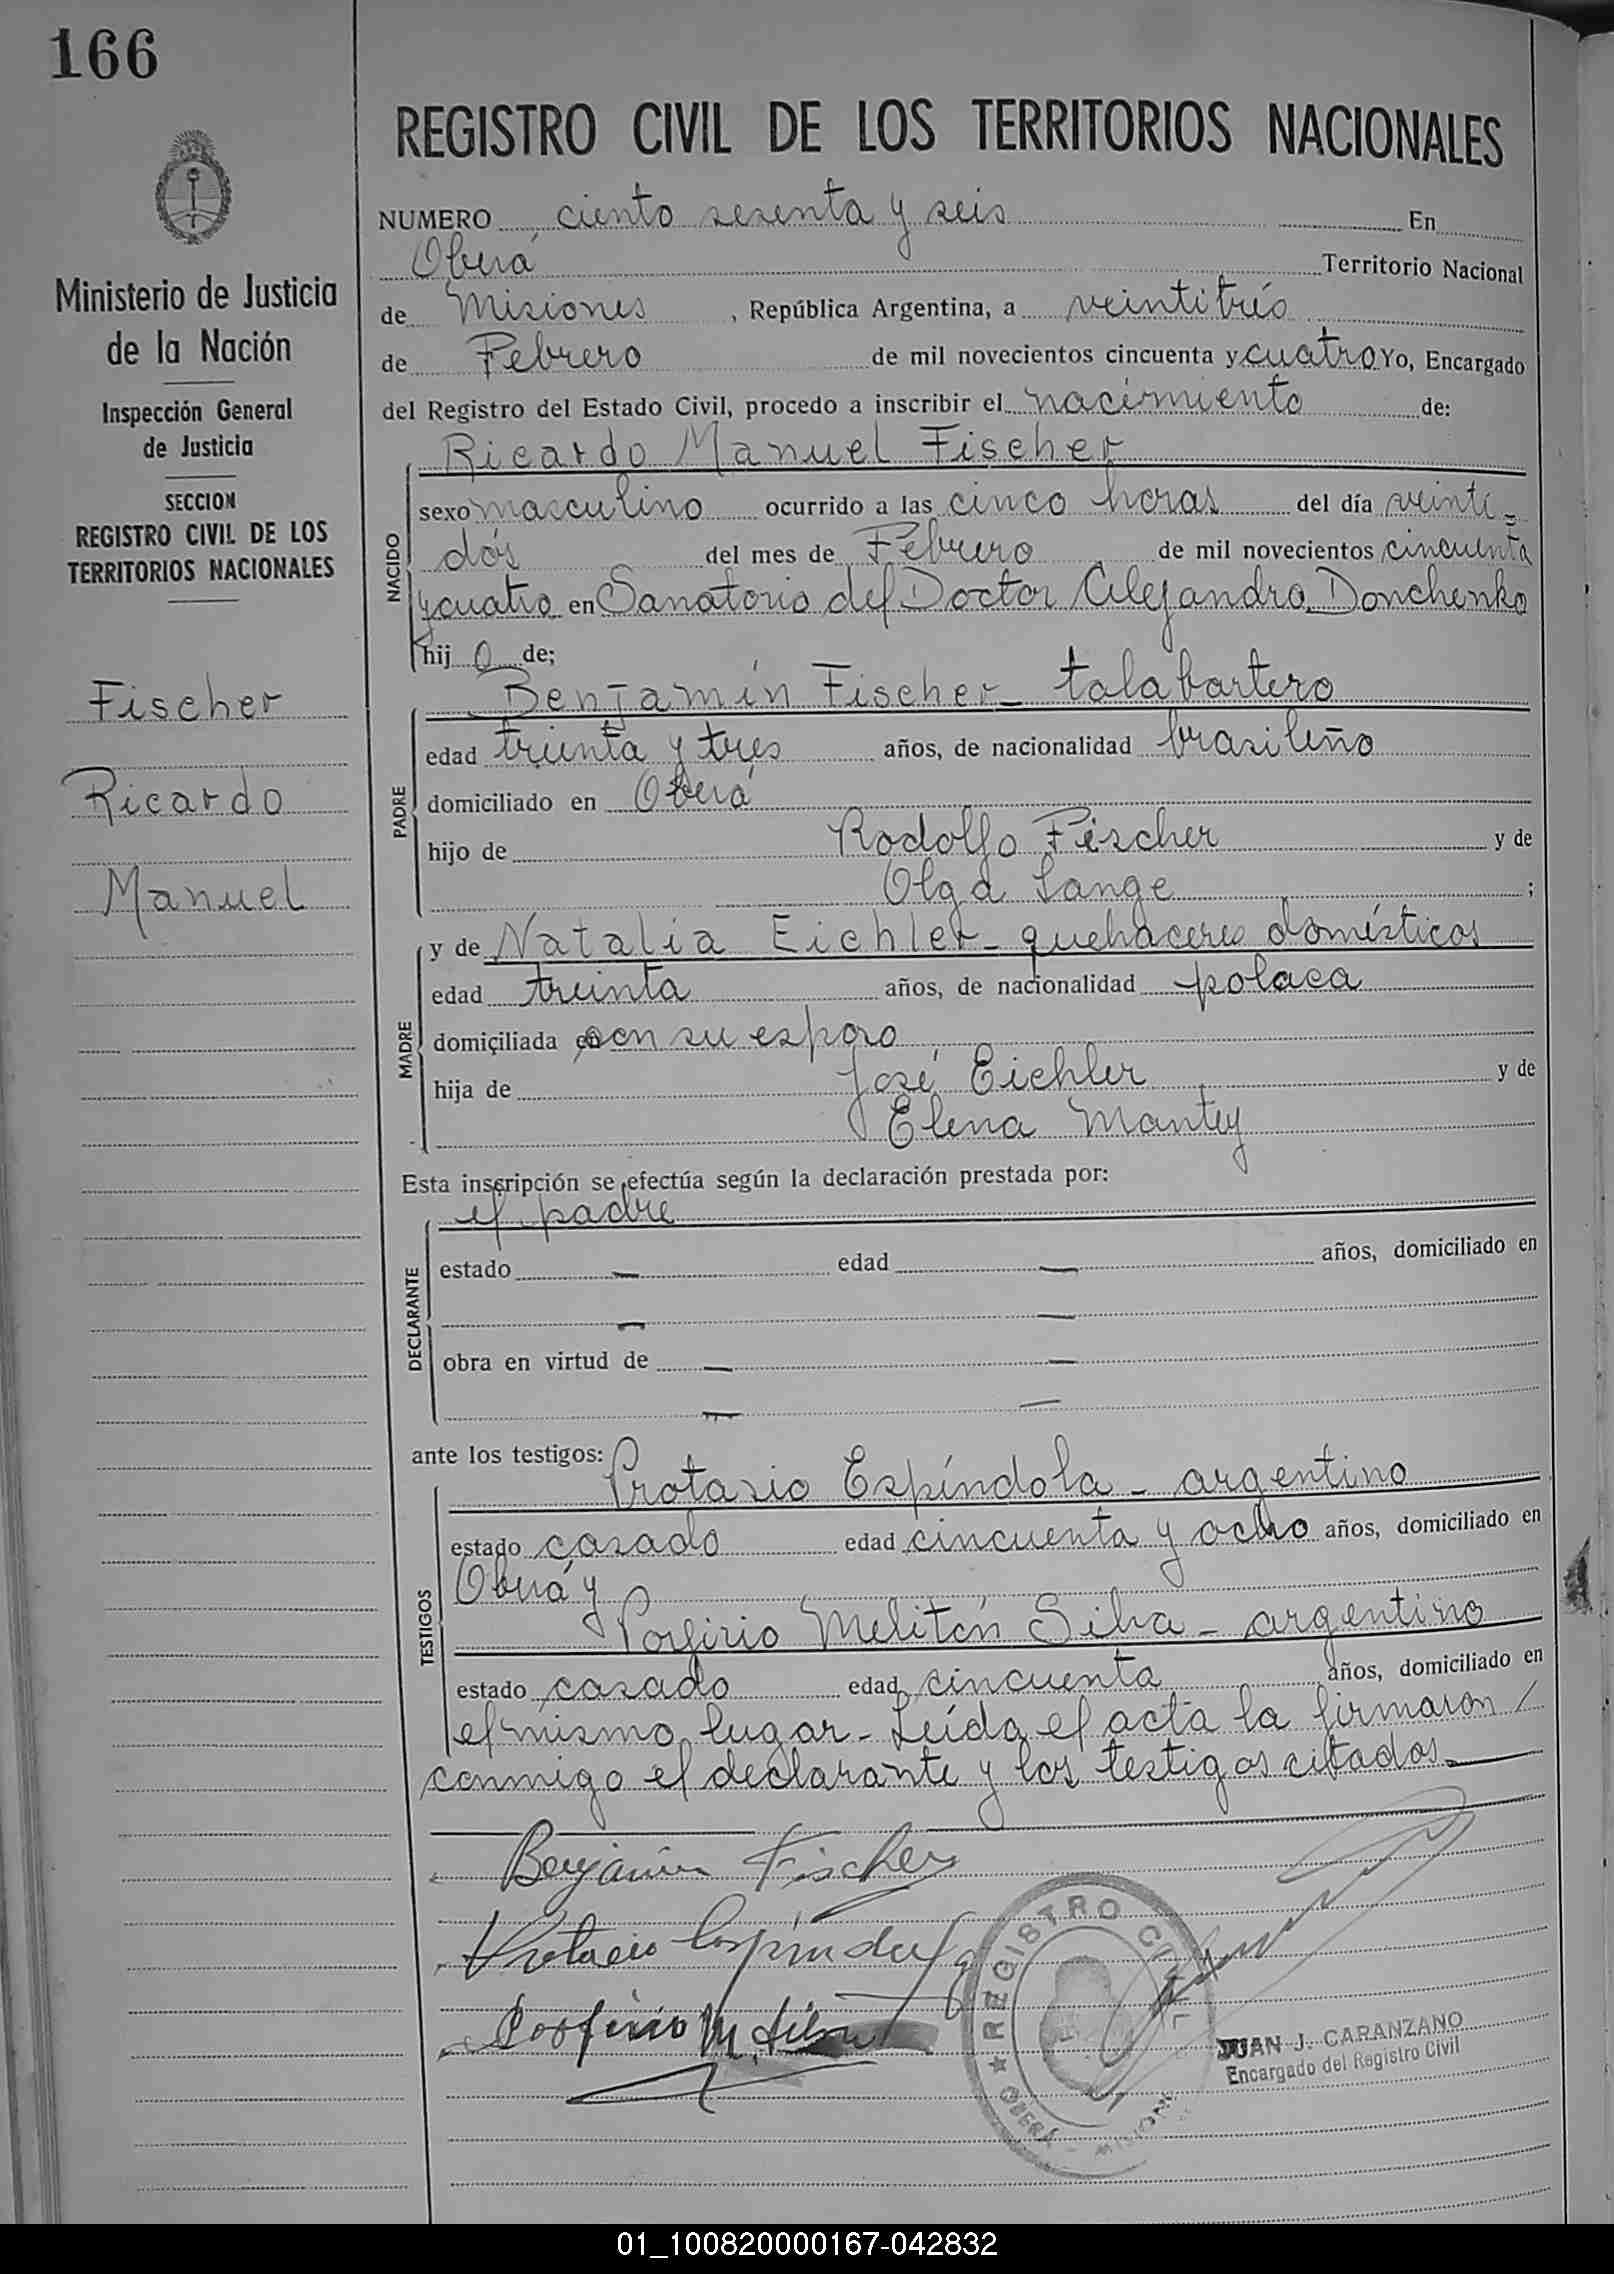 166
Ministerio de Justicia
de la Nación
Inspección General
de Justicia
SECCION
REGISTRO CIVIL DE LOS
TERRITORIOS NACIONALES
Fischer
Ricardo
Manuel
REGISTRO CIVIL DE LOS TERRITORIOS NACIONALES
NUMERO ciento sesenta y seis En
Oberá Territorio Nacional
de Misiones, República Argentina, a veintitrés
de Febrero de mil novecientos cincuenta y cuatro Yo, Encargado
del Registro del Estado Civil, procedo a inscribir el nacimiento de:
Ricardo Manuel Fischer
NACIDO
sexo masculino ocurrido a las cinco horas del día veinti-
dós del mes de Febrero de mil novecientos cincuenta
y cuatro en Sanatorio del Doctor Alejandro Donchenko
hijo de;
Benjamín Fischer - talabartero
PADRE
edad treinta y tres años, de nacionalidad brasileño
domiciliado en Oberá
hijo de Rodolfo Fischer y de
Olga Lange ;
y de Natalia Eichler - quehaceres domésticos
MADRE
edad treinta años, de nacionalidad polaca
domiciliada con su esposo
hija de José Eichler y de
Elena Mantey
Esta inscripción se efectúa según la declaración prestada por:
el padre
DECLARANTE
estado — edad — años, domiciliado en
— —
obra en virtud de — —
— —
ante los testigos:
Protasio Espíndola - argentino
TESTIGOS
estado casado edad cincuenta y ocho años, domiciliado en
Oberá y
Porfirio Melitón Silva - argentino
estado casado edad cincuenta años, domiciliado en
el mismo lugar - Leída el acta la firmaron /
conmigo el declarante y los testigos citados.
Benjamin Fischer
Protacio Espindola
Porfirio M. Silva
REGISTRO CIVIL
★ OBERÁ - MISIONES
JUAN J. CARANZANO
Encargado del Registro Civil
01_100820000167-042832